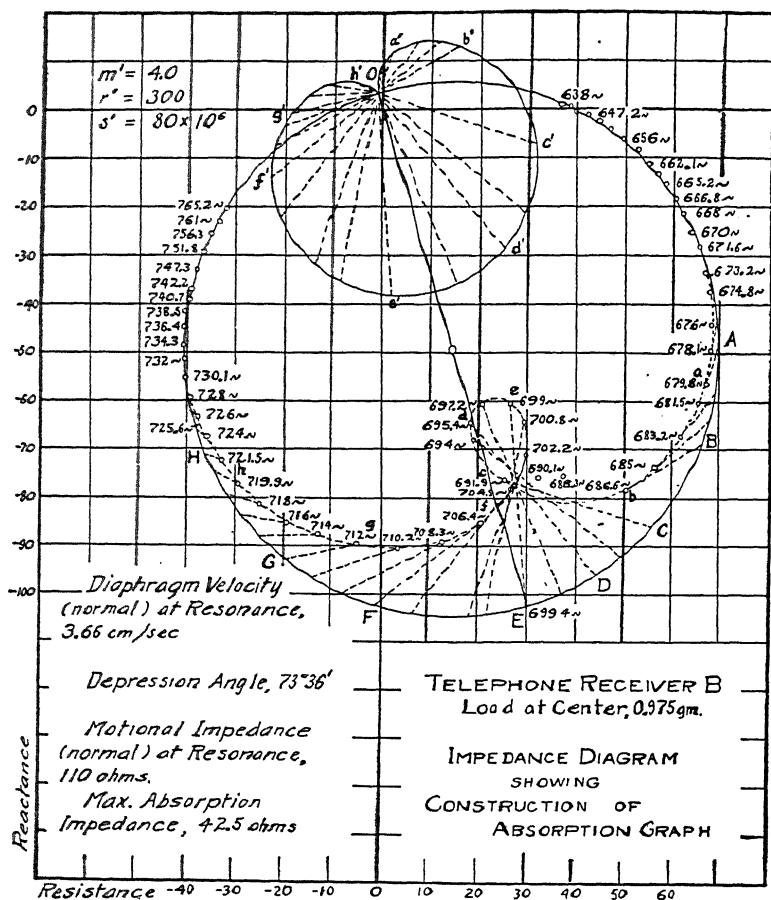 m' = 4.0
r' = 300
s' = 80 × 10⁶
a'
b'
h' O
g'
c'
f'
d'
e'
0
-10
-20
-30
-40
-50
-60
-70
-80
-90
-100
638~
647.2~
656~
662.1~
665.2~
666.8~
668~
670~
671.6~
673.2~
674.8~
676~
678.1~
A
a
679.8~
681.5~
683.2~
B
685~
686.6~
b
688.3~
690.1~
691.9
692.2
695.4~
694~
d
c
e
699~
700.8~
702.2~
704.9
f
706.4~
708.3~
710.2
g
712~
714~
716~
718~
719.9~
h
721.5~
H
724~
725.6~
726~
728~
730.1~
732~
734.3~
736.4~
738.5~
740.7~
742.2~
747.3
751.8
756.3
761~
765.2~
C
D
E
699.4~
F
G
Diaphragm Velocity
(normal) at Resonance,
3.66 cm/sec
Depression Angle, 73°36'
Motional Impedance
(normal) at Resonance,
110 ohms.
Max. Absorption
Impedance, 42.5 ohms
TELEPHONE RECEIVER B
Load at Center, 0.975gm.
IMPEDANCE DIAGRAM
SHOWING
CONSTRUCTION OF
ABSORPTION GRAPH
Reactance
Resistance -40 -30 -20 -10 0 10 20 30 40 50 60